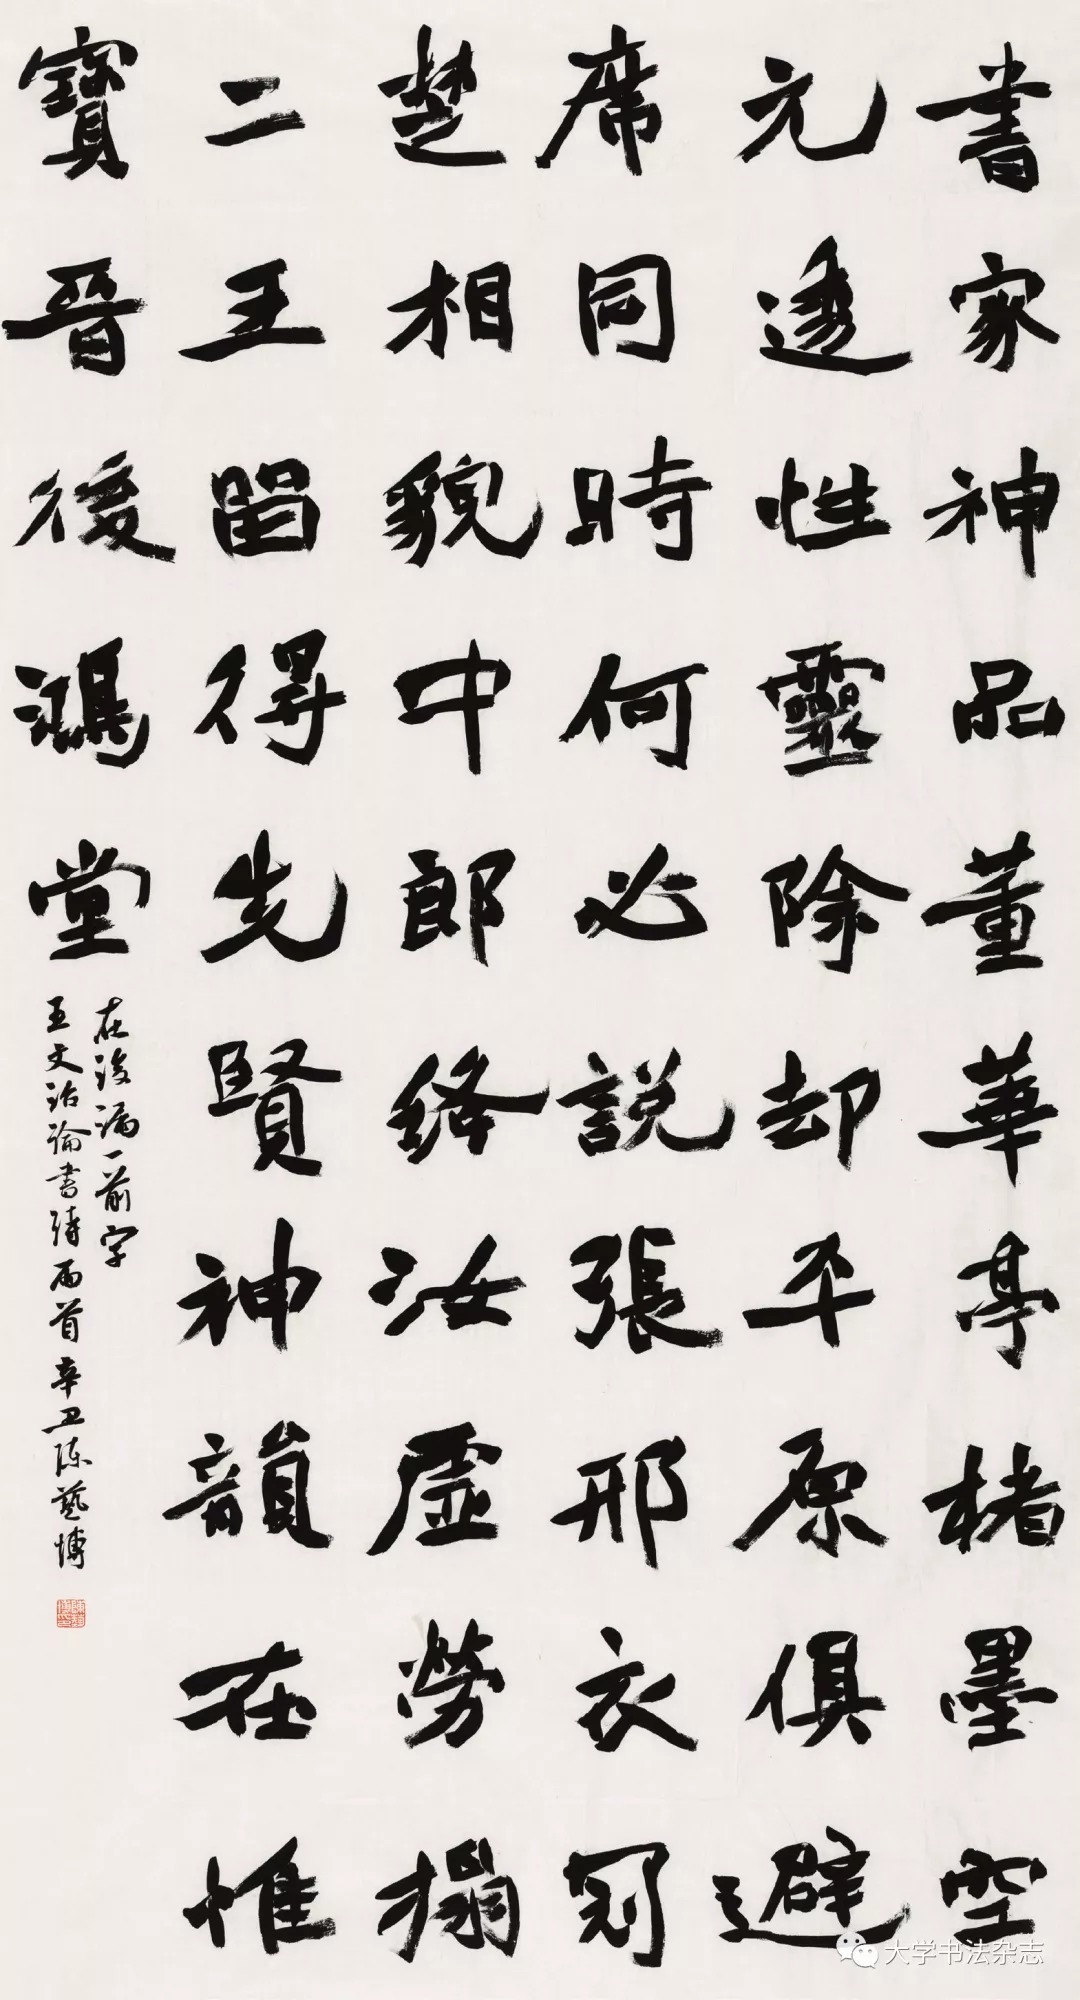 書家神品董華亭楮墨空
元透性靈除却平原俱避
席同時何必說張邢衣冠
楚相貌中郎絳汝虛勞搨
二王留得先賢神韻在惟
寶晉後鴻堂
在後漏一前字
王文治論書詩兩首辛丑陳藝博
大学书法杂志